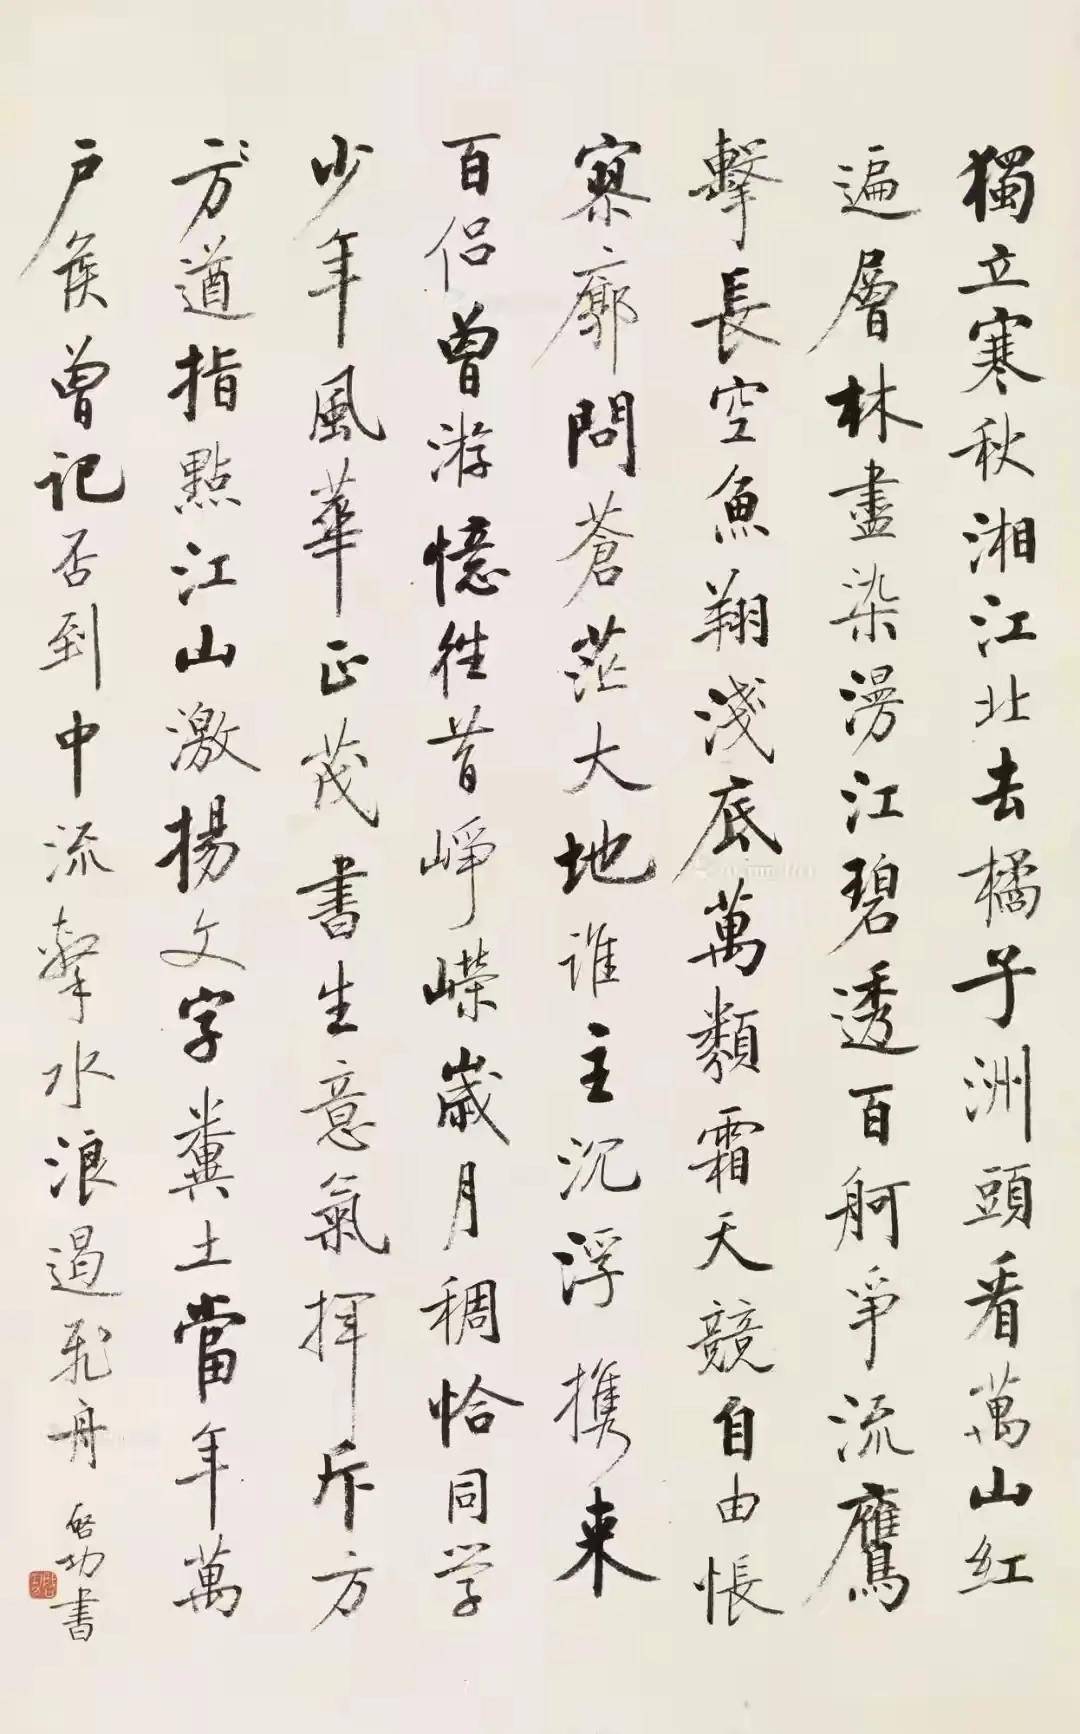 獨立寒秋湘江北去橘子洲頭看萬山红
遍層林盡染漫江碧透百舸爭流鷹
擊長空魚翔淺底萬類霜天競自由悵
寥廓問蒼茫大地谁主沉浮携来
百侣曾游憶往昔崢嶸歲月稠恰同学
少年風華正茂書生意氣揮斥方
方遒指點江山激揚文字糞土當年萬
户侯曾記否到中流擊水浪遏飛舟
啓功書